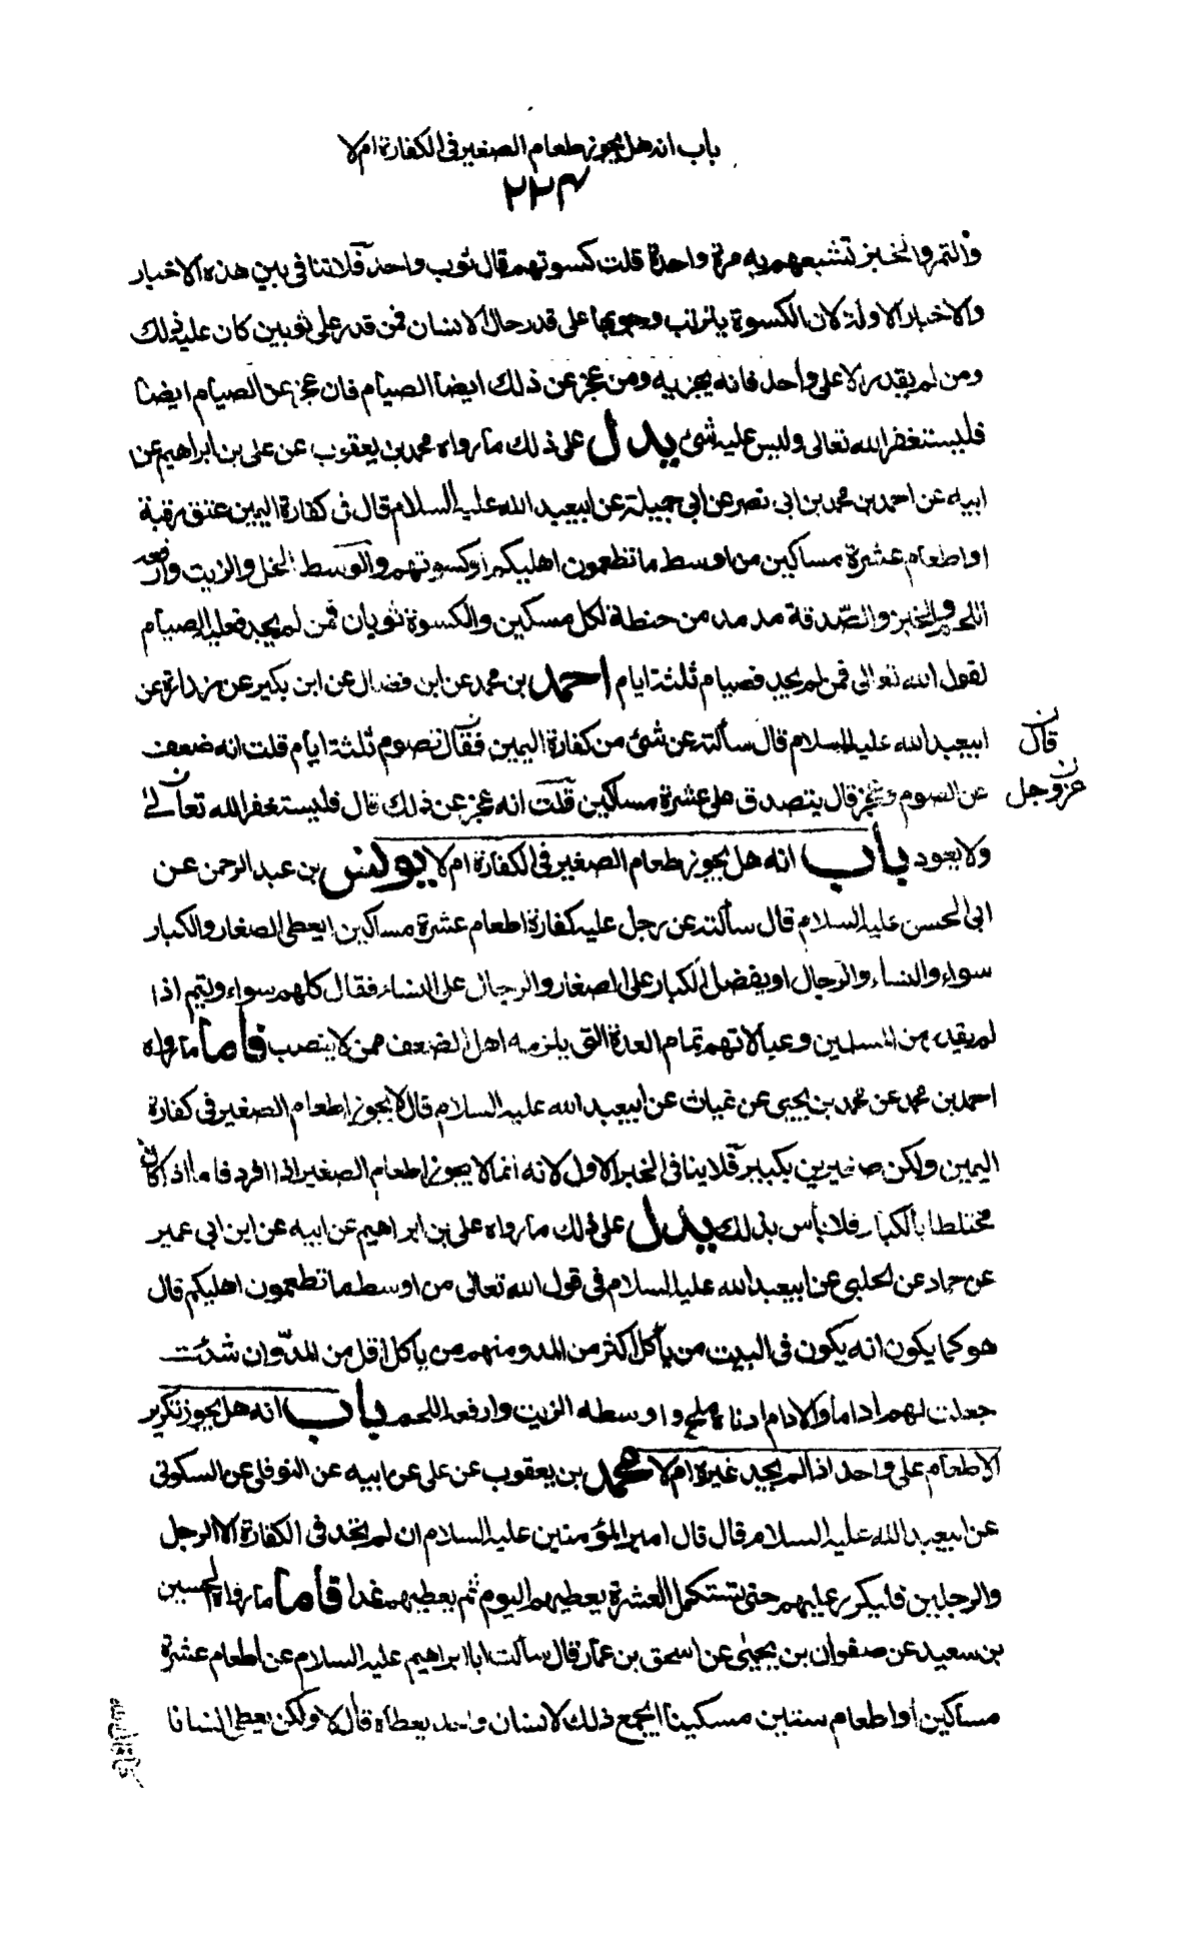 باب انه هل يجوز طعام الصغير فى الكفارة ام لا
٢٢٤
والتمر والخبز تشبعهم به مرة واحدة قلت كسوتهم قال ثوب واحد فلا تنافى بين هذه الاخبار
والاخبار الاولة لان الكسوة يترتب وجوبها على قدر حال الانسان فمن قدر على ثوبين كان عليه ذلك
ومن لم يقدر الا على واحد فانه يجزيه ومن عجز عن ذلك ايضا الصيام فان عجز عن الصيام ايضا
فليستغفر الله تعالى وليس عليه شئ يدل على ذلك ما رواه محمد بن يعقوب عن على بن ابراهيم عن
ابيه عن احمد بن محمد بن ابى نصر عن ابى جميلة عن ابيعبد الله عليه السلام قال فى كفارة اليمين عتق رقبة
او اطعام عشرة مساكين من اوسط ما تطعمون اهليكم او كسوتهم والوسط الخل والزيت وارفعه
اللحم والخبز والصدقة مد مد من حنطة لكل مسكين والكسوة ثوبان فمن لم يجد فعليه الصيام
لقول الله تعالى فمن لم يجد فصيام ثلثة ايام احمد بن محمد عن ابن فضال عن ابن بكير عن زرارة عن
ابيعبد الله عليه السلام قال سألته عن شئ من كفارة اليمين فقال تصوم ثلثة ايام قلت انه ضعف
قال ن
عن الصوم وعجز قال يتصدق على عشرة مساكين قلت انه عجز عن ذلك قال فليستغفر الله تعالى
عز وجل ن
ولا يعود باب انه هل يجوز طعام الصغير فى الكفارة ام لا يونس بن عبد الرحمن عن
ابى الحسن عليه السلام قال سألته عن رجل عليه كفارة اطعام عشرة مساكين ايعطى الصغار والكبار
سواء والنساء والرجال او يفضل الكبار على الصغار والرجال على النساء فقال كلهم سواء ويتم اذا
لم يقدر من المسلمين وعيالاتهم تمام العدة التى يلزمه اهل الضعف ممن لا ينصب فأما ما رواه
احمد بن محمد عن محمد بن يحيى عن غياث عن ابيعبد الله عليه السلام قال لا يجوز اطعام الصغير فى كفارة
اليمين ولكن صغيرين بكبير فلا ينافى الخبر الاول لانه انما لا يجوز اطعام الصغير اذا افرد فاما اذا كان
مختلطا بالكبار فلا بأس بذلك يدل على ذلك ما رواه على بن ابراهيم عن ابيه عن ابن ابى عمير
عن حماد عن الحلبى عن ابيعبد الله عليه السلام فى قول الله تعالى من اوسط ما تطعمون اهليكم قال
هو كما يكون انه يكون فى البيت من يأكل اكثر من المد ومنهم من يأكل اقل من المد وان شئت
جعلت لهم اداما والادام ادناه ملح واوسطه الزيت وارفعه اللحم باب انه هل يجوز تكرير
الاطعام على واحد اذا لم يجد غيره ام لا محمد بن يعقوب عن على عن ابيه عن النوفلى عن السكونى
عن ابيعبد الله عليه السلام قال قال امير المؤمنين عليه السلام ان لم يجد فى الكفارة الا الرجل
والرجلين فليكرر عليهم حتى تستكمل العشرة يعطيهم اليوم ثم يعطيهم غدا فأما ما رواه الحسين
بن سعيد عن صفوان بن يحيى عن اسحق بن عمار قال سألت ابا ابراهيم عليه السلام عن اطعام عشرة
مساكين او اطعام ستين مسكينا ايجمع ذلك لانسان واحد يعطاه قال لا ولكن يعطى انسانا